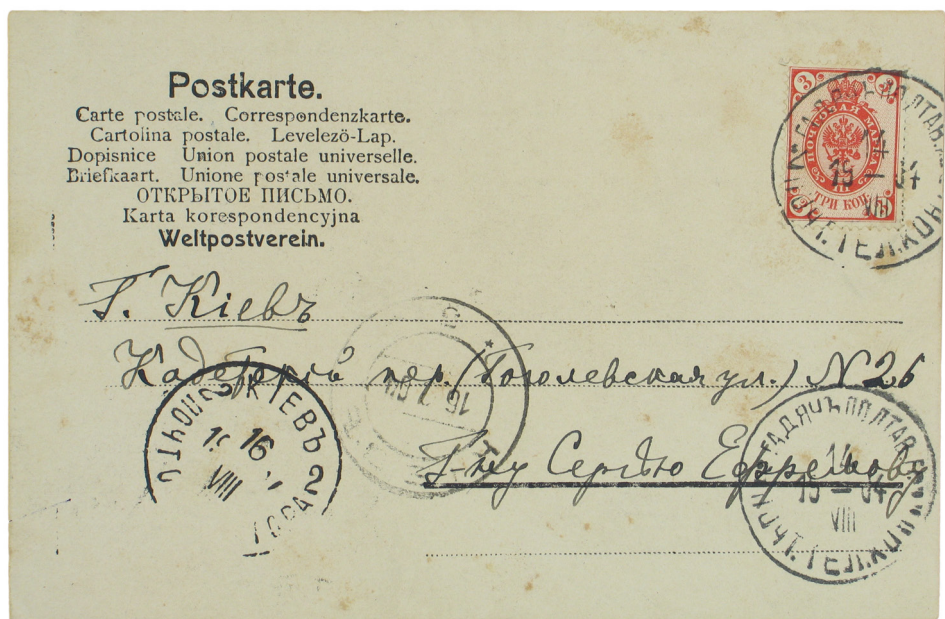 Postkarte.
Carte postale. Correspondenzkarte.
Cartolina postale. Levelezö-Lap.
Dopisnice Union postale universelle.
Briefkaart. Unione postale universale.
ОТКРЫТОЕ ПИСЬМО.
Karta korespondencyjna
Weltpostverein.
3
ПОЧТОВАЯ МАРКА
ТРИ КОП.
ПОЛТАВ.
14
19 — 04
VIII
ПОЧТ. ТЕЛ. КОН
Г. Кіевъ
Кадетскій пер. (Гоголевская ул.) N 26
Г-ну Сергѣю Ефремову
КІЕВЪ 2
16
VIII
16 7
ГАДЯЧЪ ПОЛТАВ.
14
19 — 04
VIII
ПОЧТ. ТЕЛ. КОН